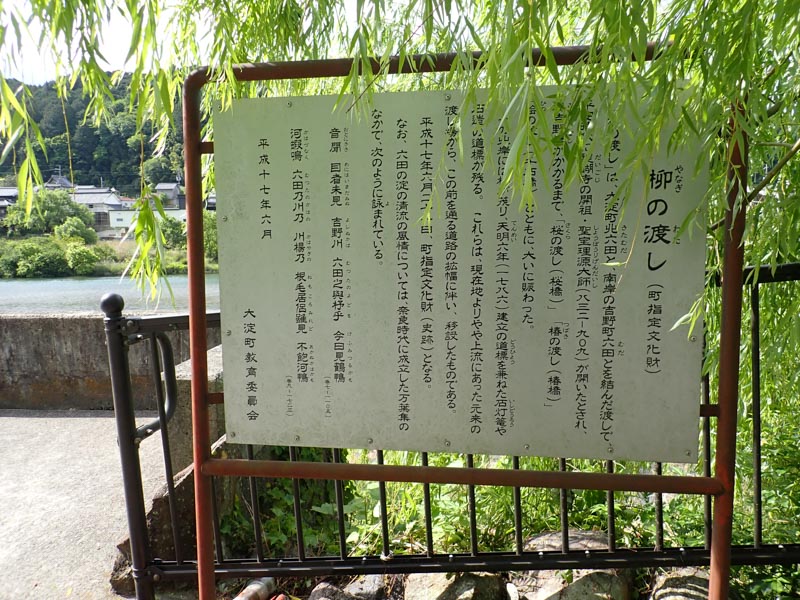 柳の渡し（町指定文化財）
の渡しは、大淀町北六田と南岸の吉野町六田とを結んだ渡しで、
醐寺の開祖・聖宝理源大師（八三二-九〇九）が開いたとされ、
吉野 かかるまで、「桜の渡し（桜橋）」「椿の渡し（椿橋）」
ともに、大いに賑わった。
北岸には 茂り、天明六年（一七八六）建立の道標を兼ねた石灯篭や
石造の道標が残る。これらは、現在地よりやや上流にあった元来の
渡し場から、この前を通る道路の拡幅に伴い、移設したものである。
平成十七年六月 日、町指定文化財（史跡）となる。
なお、六田の淀の清流の風情については、奈良時代に成立した万葉集の
なかで、次のように詠まれている。
音聞 目者未見 吉野川 六田之與杼乎 今日見鶴鴨（巻七-一一〇五）
河蝦鳴 六田乃川乃 川楊乃 根毛居侶雖見 不飽河鴨（巻九-一七二三）
平成十七年六月
大淀町教育委員会